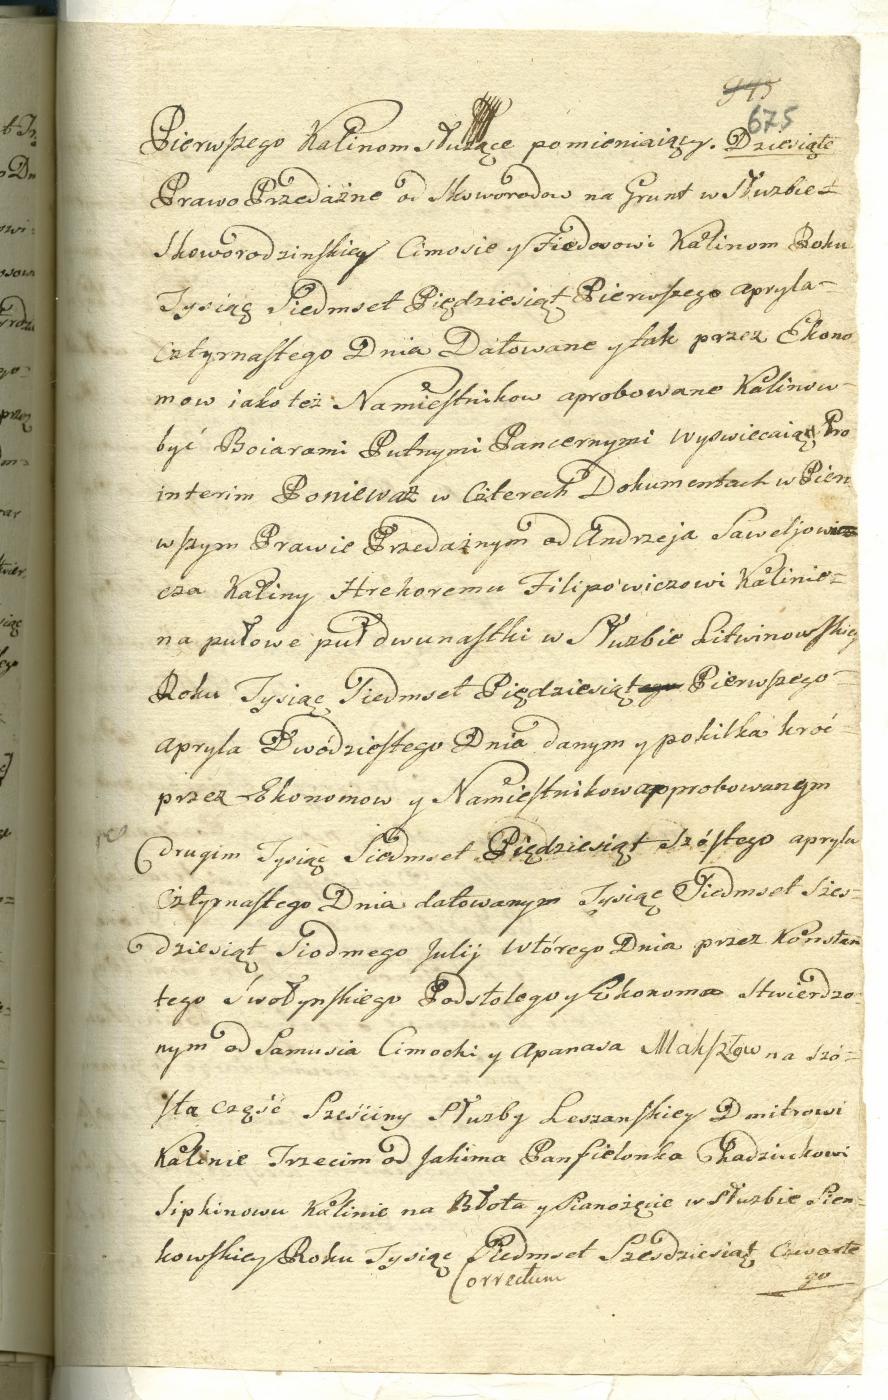 675
Pierwszego Kalinom służące pomieniaiący. Dziesiąte
Prawo Przedażne od Skoworodow na Grunt w Służbie
Skoworodzinskiey Cimosie y Fiedosowi Kalinom Roku
Tysiąc Siedmset Piędziesiąt Pierwszego apryla
cztyrnastego Dnia Datowane y tak przez Ekono
mow iako też Namiestnikow aprobowane Kalinow
być Boiarami Putnymi Pancernymi wyswiecaiące Pro
interim Ponieważ w Czterech Dokumentach w Pier
wszym Prawie Przedażnym od Andrzeja Saweljowi
cza Kaliny Hrehoremu Filipowiczowi Kalinie
na pułowe puł dwunastki w Służbie Litwinowskiey
Roku Tysiąc Siedmset Piędziesiąt Pierwszego
apryla Dwódziestego Dnia danym y pokilka kroć
przez Ekonomow y Namiestnikow approbowanym
drugim Tysiąc Siedmset Piędziesiąt szóstego apryla
Cztyrnastego Dnia datowanym Tysiąc Siedmset Szes
dziesiąt Siodmego Julij wtórego Dnia przez Konstan
tego Swołynskiego Podstolego y Ekonoma stwierdzo
nym od Samusia Cimochi y Apanasa na szó
sta część Sześciny Służby Leszanskiey Dmitrowi
Kalinie Trzecim od Jakima Panfielonka Radziukowi
Sipkinowu Kalinie na Błota y Sianożęcie w Służbie Sien
kowskiey Roku Tysiąc Siedmset Szesdziesiąt Czwarte
go
Correctum